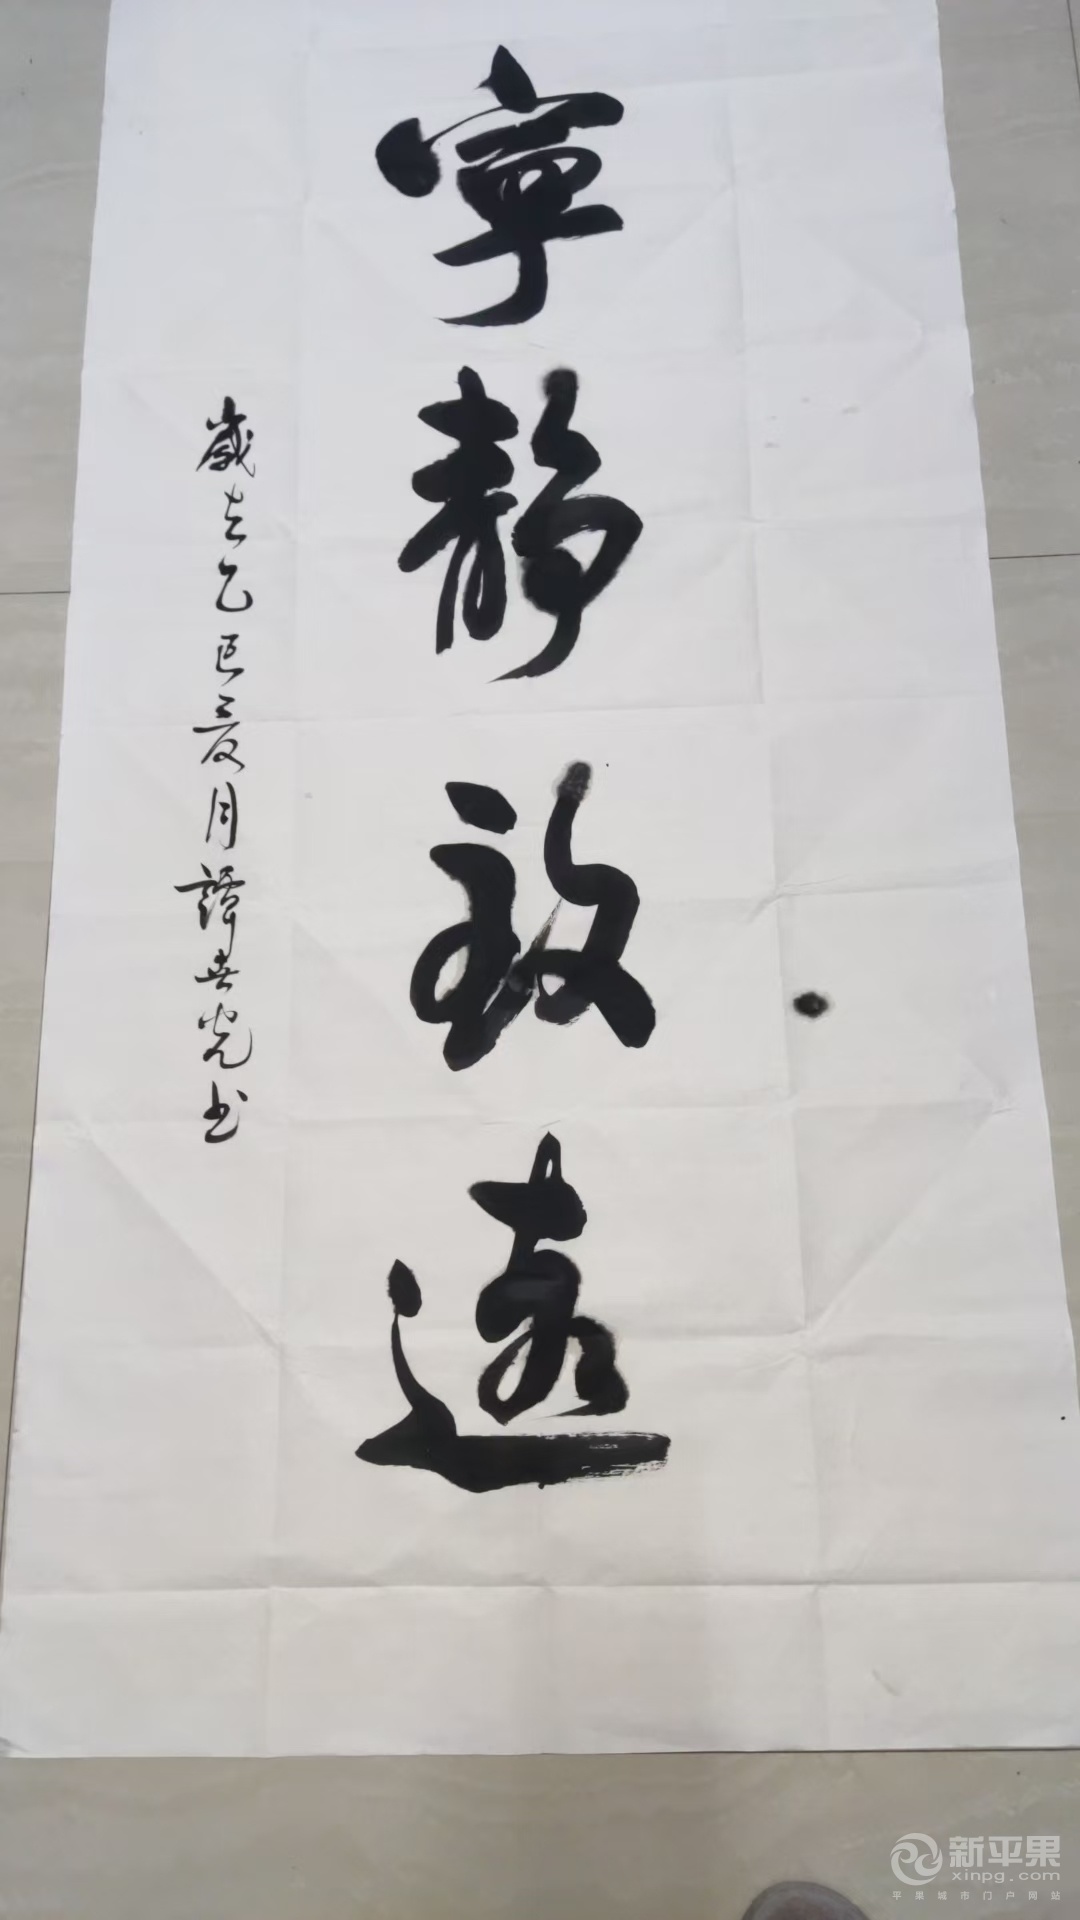 寧靜致遠
歲在乙巳夏月譚其光书
新平果
xinpg.com
平果城市门户网站